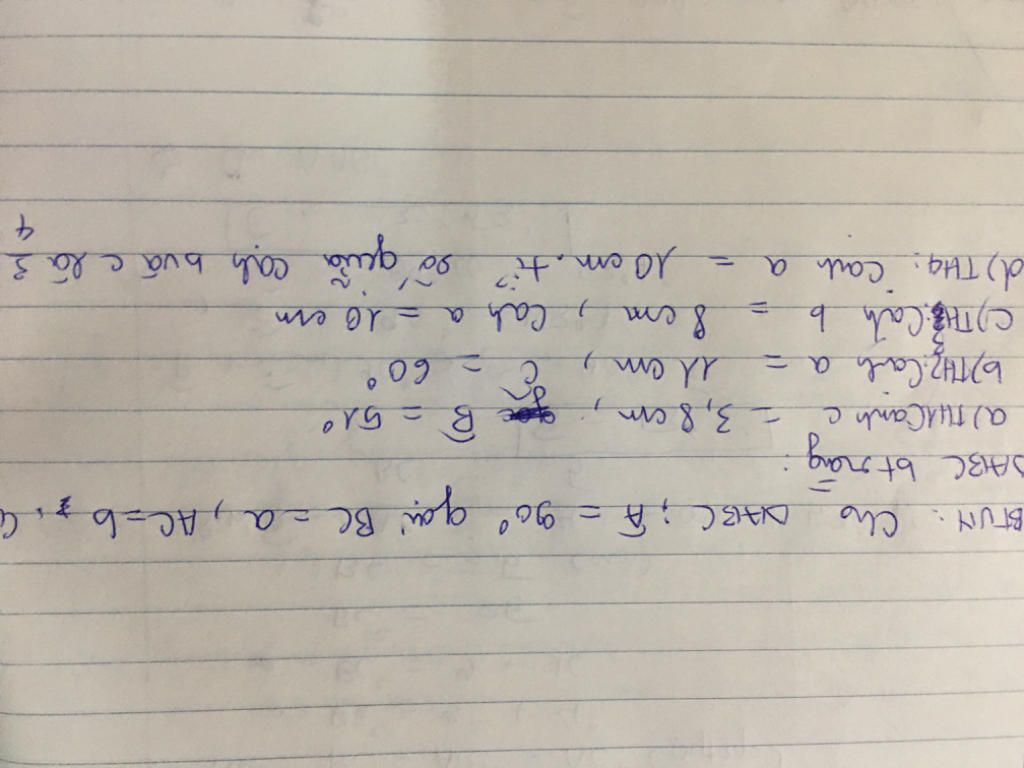 BTVN: Cho ΔABC; Â = 90° gọi BC = a, AC = b,
ΔABC bt rằng:
a) TH1 Cạnh c = 3,8 cm, góc B̂ = 51°
b) TH2. Cạnh a = 11 cm, Ĉ = 60°
c) TH3. Cạnh b = 8 cm, Cạnh a = 10 cm
d) TH4: Cạnh a = 10 cm. tỉ số giữa cạnh b và c là 3/4